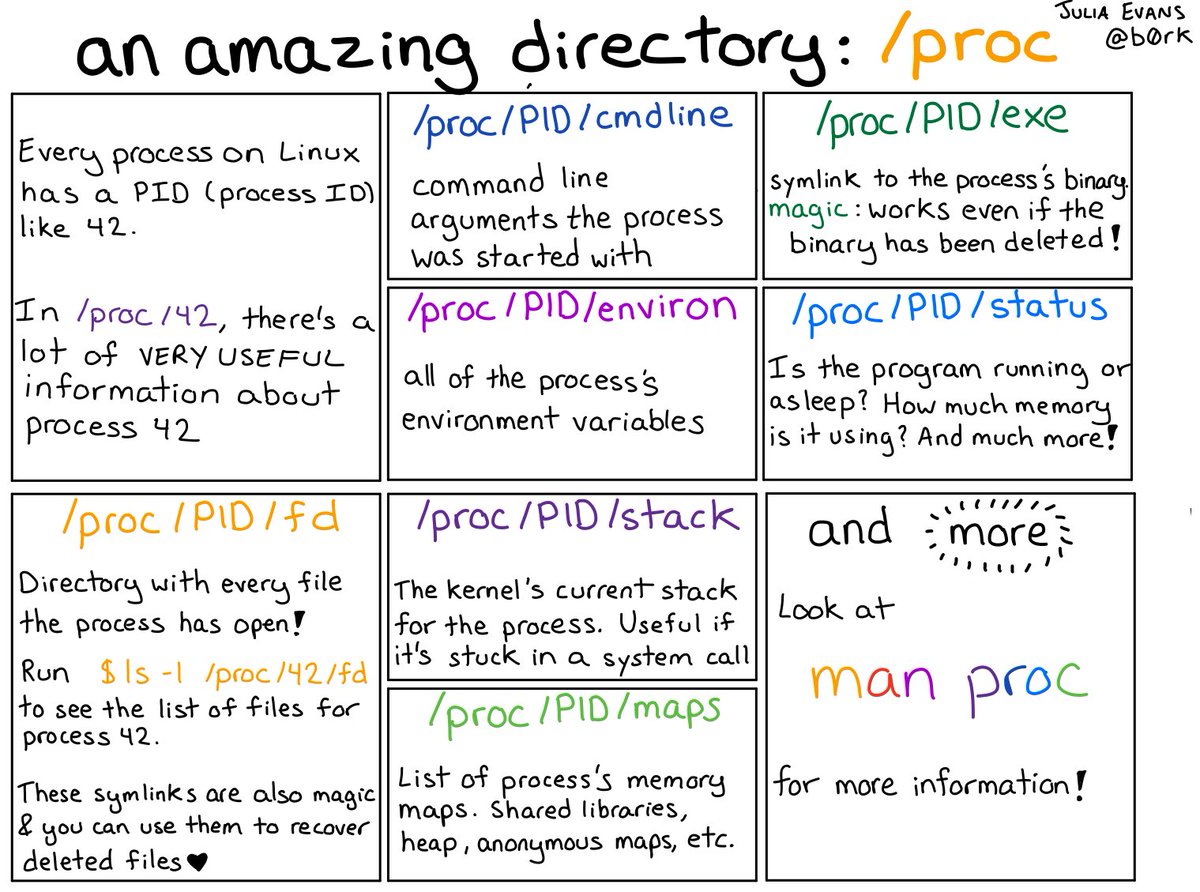 an amazing directory: /proc
JULIA EVANS
@b0rk
Every process on Linux
has a PID (process ID)
like 42.
In /proc/42, there's a
lot of VERY USEFUL
information about
process 42
/proc/PID/cmdline
command line
arguments the process
was started with
/proc/PID/exe
symlink to the process's binary.
magic: works even if the
binary has been deleted!
/proc/PID/environ
all of the process's
environment variables
/proc/PID/status
Is the program running or
asleep? How much memory
is it using? And much more!
/proc/PID/fd
Directory with every file
the process has open!
Run $ ls -l /proc/42/fd
to see the list of files for
process 42.
These symlinks are also magic
& you can use them to recover
deleted files ♥
/proc/PID/stack
The kernel's current stack
for the process. Useful if
it's stuck in a system call
/proc/PID/maps
List of process's memory
maps. Shared libraries,
heap, anonymous maps, etc.
and more
Look at
man proc
for more information!